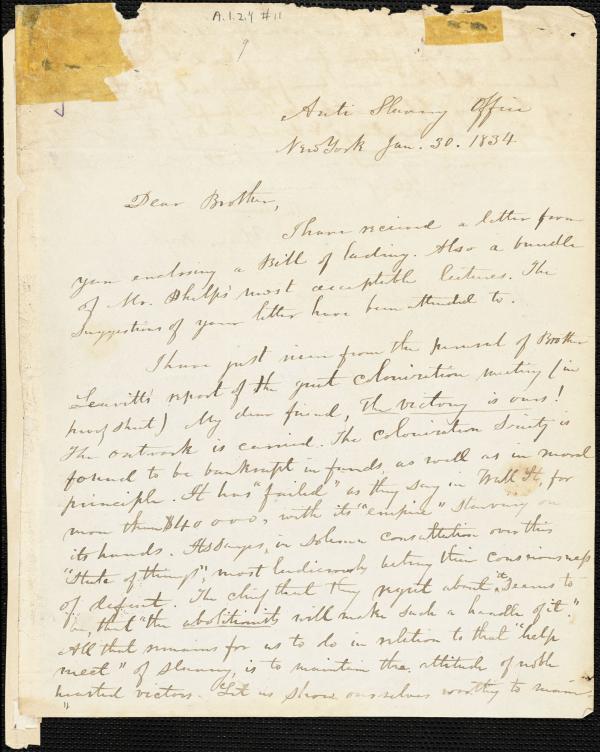 A.1.2.4 #11
9
Anti Slavery Office
New York Jan. 30. 1834
Dear Brother,
I have recieved a letter from
you enclosing a Bill of lading. Also a bundle
of Mr. Phelps' most acceptable lectures. The
suggestions of your letter have been attended to.
I have just risen from the perusal of Brother
Leavitt's report of the great Colonization meeting (in
proof sheet) My dear friend, The victory is ours!
The outwork is carried. The Colonization Society is
found to be bankrupt in funds, as well as in moral
principle. It has "failed" as they say in Wall St, for
more than $40 000, with its "empire" Slavery on
its hands. Its Sages, in solemn consultation over this
"State of things", most ludicrously betray their consciousness
of defeat. The chief that they regret about it seems to
be, that "the abolitionists will make such a handle of it."
All that remains for us to do in relation to that "help
meet" of Slavery, is to maintain the attitude of noble
hearted victors. "Let us show ourselves worthy to main
"